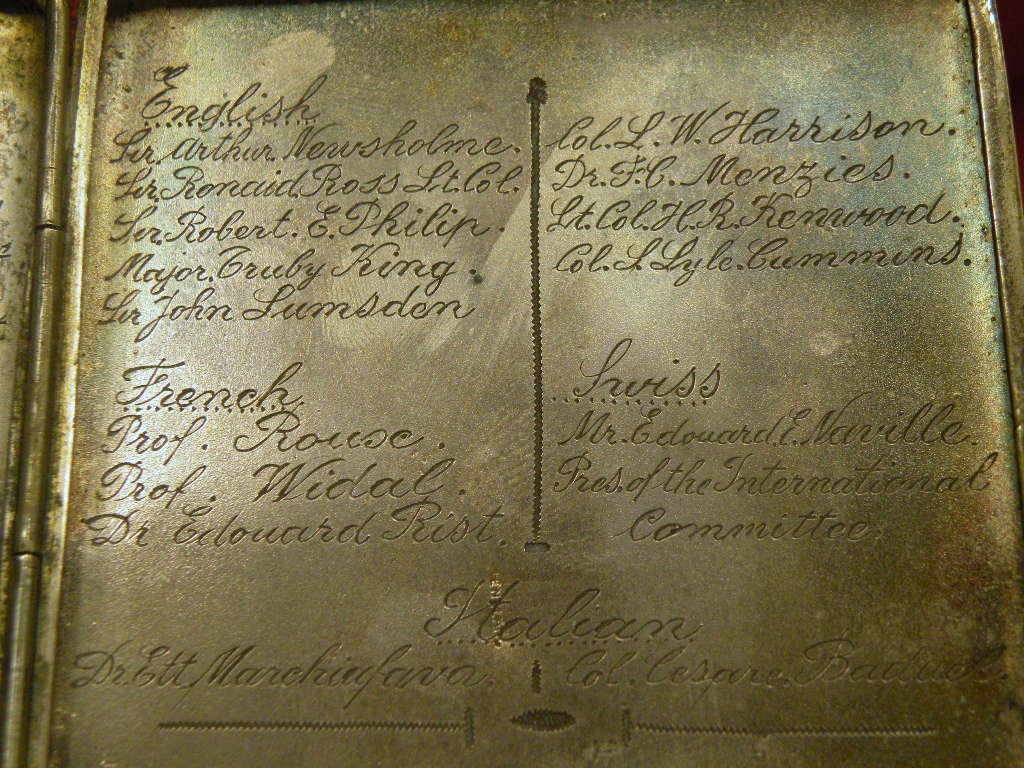 English
Sir Arthur Newsholme.
Sir Ronald Ross Lt. Col.
Sir Robert. E. Philip.
Major. Truby King.
Sir John Lumsden
Col. L. W. Harrison.
Dr. F. C. Menzies.
Lt. Col. H. R. Kenwood.
Col. S. Lyle. Cummins.
French
Prof. Rouse.
Prof. Widal.
Dr Edouard Rist.
Swiss
Mr. Edouard. E. Naville.
Pres. of the International
Committee.
Italian
Dr. Ett Marchiafava.
Col. Cesare. Baduel.